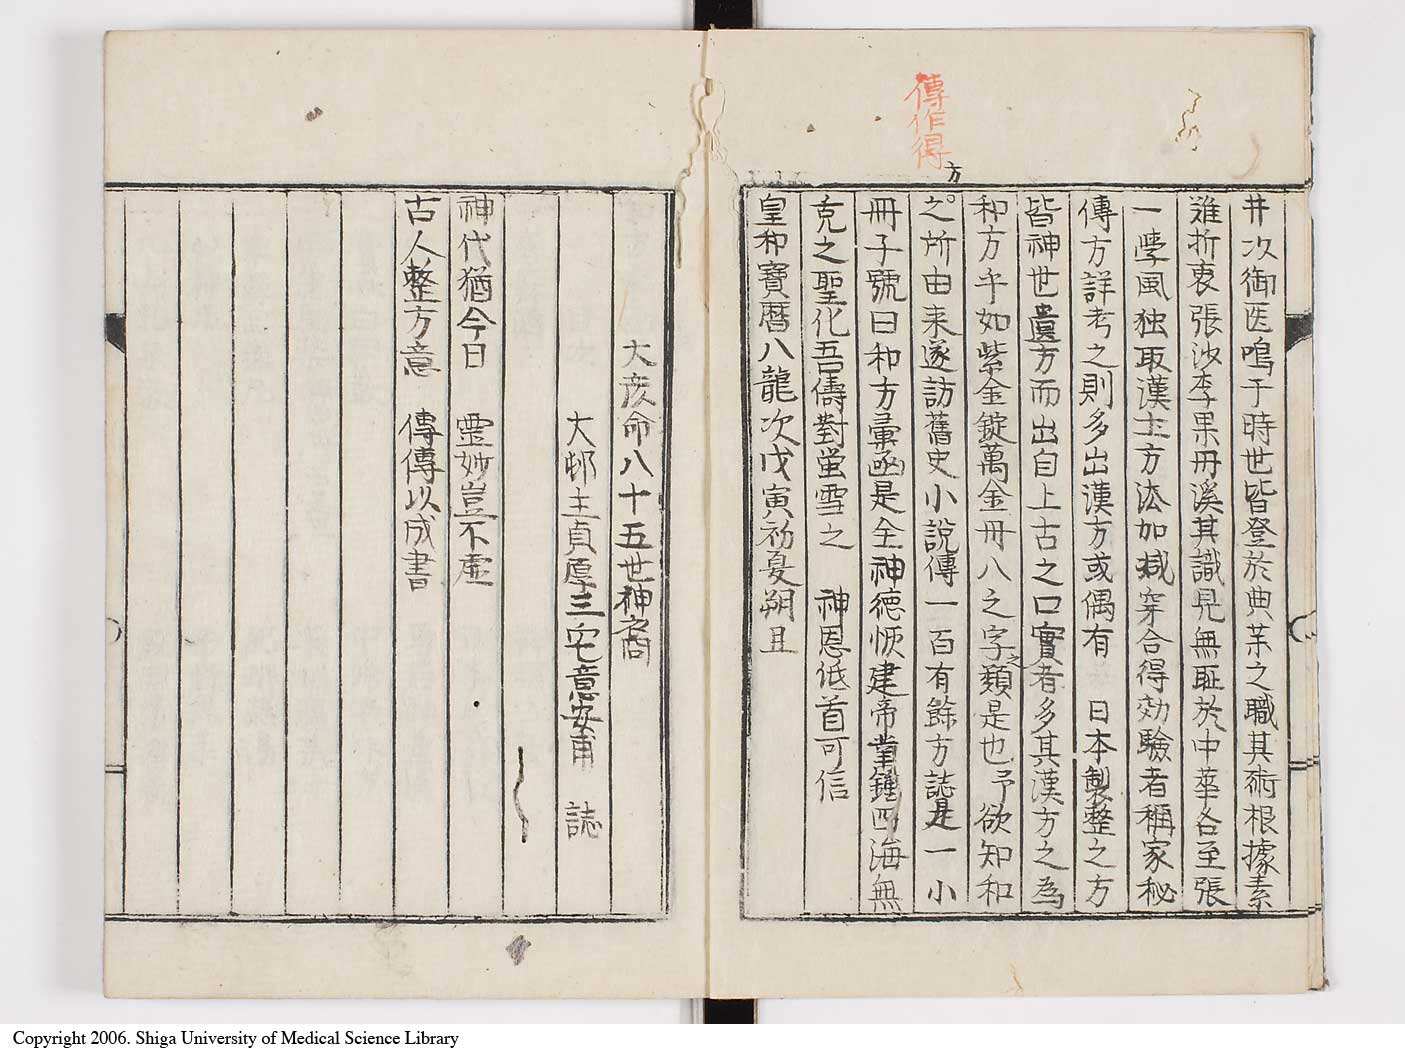 傳作得
井次御医鳴于時世皆登於典茉之職其術根據素
雖折衷張沙李果丹溪其識見無耻於中華各至張
一學風独取漢土方法加减穿合得効驗者稱家秘
傳方詳考之則多出漢方或偶有 日本製整之方
皆神世遺方而出自上古之口實者多其漢方之為
和方乎如紫金錠萬金丹八之字之類是也予欲知和
方
之所由来遂訪舊史小說傳一百有餘方誌是一小
冊子號曰和方彙函是全神徳恢建帝業鍾四海無
克之聖化吾儔對蛍雪之 神恩低首可信
皇和寶暦八龍次戊寅初夏朔旦
大彦命八十五世神裔
大邨主貞厚三宅意安甫 誌
神代猶今日 霊妙豈不虚
古人整方意 傳傳以成書
Copyright 2006. Shiga University of Medical Science Library